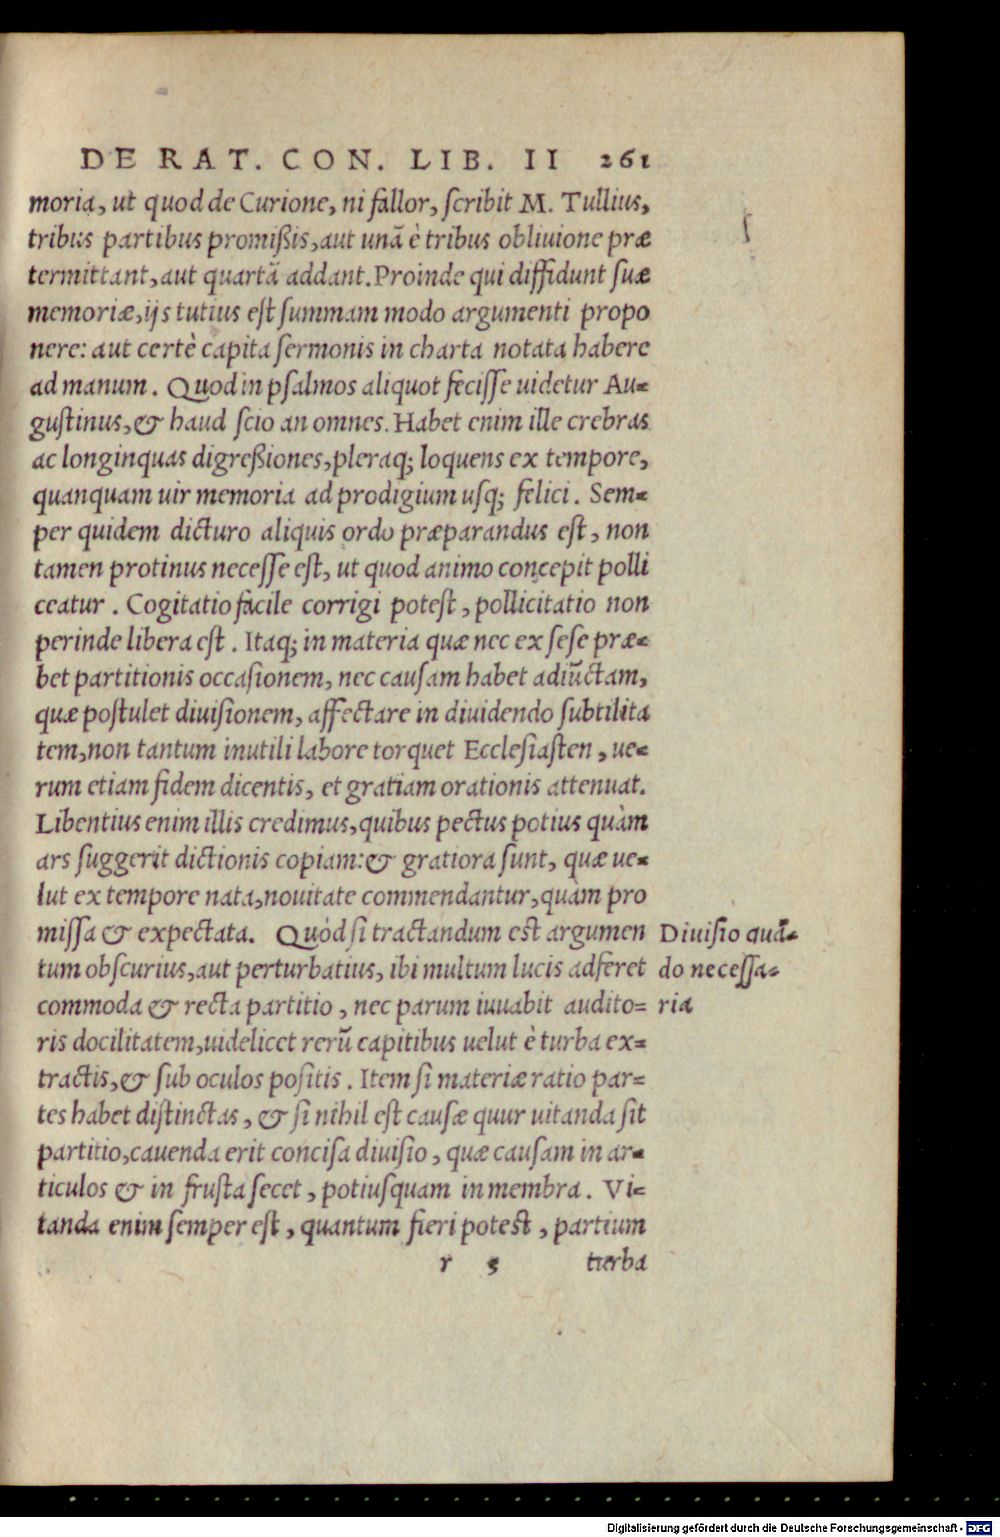 DE RAT. CON. LIB. II 261
moria, ut quod de Curione, ni fallor, ſcribit M. Tullius,
tribus partibus promißis, aut unã è tribus obliuione præ
termittant, aut quartã addant. Proinde qui diffidunt ſuæ
memoriæ, ijs tutius eſt ſummam modo argumenti propo
nere: aut certè capita ſermonis in charta notata habere
ad manum. Quod in pſalmos aliquot feciſſe uidetur Au-
guſtinus, & haud ſcio an omnes. Habet enim ille crebras
ac longinquas digreßiones, pleraq; loquens ex tempore,
quanquam uir memoria ad prodigium uſq; felici. Sem-
per quidem dicturo aliquis ordo præparandus eſt, non
tamen protinus neceſſe eſt, ut quod animo concepit polli
ceatur. Cogitatio facile corrigi poteſt, pollicitatio non
perinde libera eſt. Itaq; in materia quæ nec ex ſeſe præ-
bet partitionis occaſionem, nec cauſam habet adiũctam,
quæ poſtulet diuiſionem, affectare in diuidendo ſubtilita
tem, non tantum inutili labore torquet Eccleſiaſten, ue-
rum etiam fidem dicentis, et gratiam orationis attenuat.
Libentius enim illis credimus, quibus pectus potius quàm
ars ſuggerit dictionis copiam: & gratiora ſunt, quæ ue-
lut ex tempore nata, nouitate commendantur, quàm pro
miſſa & expectata. Quòd ſi tractandum eſt argumen
tum obſcurius, aut perturbatius, ibi multum lucis adferet
commoda & recta partitio, nec parum iuuabit audito-
ris docilitatem, uidelicet rerũ capitibus uelut è turba ex-
tractis, & ſub oculos poſitis. Item ſi materiæ ratio par-
tes habet diſtinctas, & ſi nihil eſt cauſæ quur uitanda ſit
partitio, cauenda erit conciſa diuiſio, quæ cauſam in ar-
ticulos & in fruſta ſecet, potiuſquam in membra. Vi-
tanda enim ſemper eſt, quantum fieri poteſt, partium
r 5 turba
Diuiſio quã-
do neceſſa-
ria
Digitalisierung gefördert durch die Deutsche Forschungsgemeinschaft - DFG